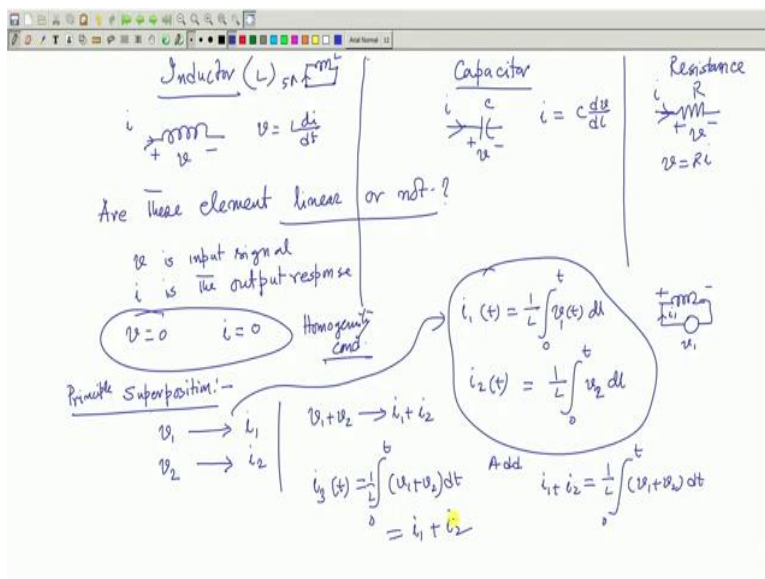 Inductor (L) 5A L
i
+ v −
v = L di/dt
Capacitor
i C
+ v −
i = C dv/dt
Resistance
i R
+ v −
v = Ri
Are these element linear or not-?
v is input signal
i is the output response
v=0 i=0
Homogenity
cond.
Principle Superposition:-
v₁ → i₁
v₂ → i₂
v₁+v₂ → i₁+i₂
i₃(t) = 1/L ∫₀ᵗ (v₁+v₂) dt
= i₁ + i₂
i₁(t) = 1/L ∫₀ᵗ v₁(t) dt
i₂(t) = 1/L ∫₀ᵗ v₂ dt
+ −
i₁
v₁
Add
i₁+i₂ = 1/L ∫₀ᵗ (v₁+v₂) dt